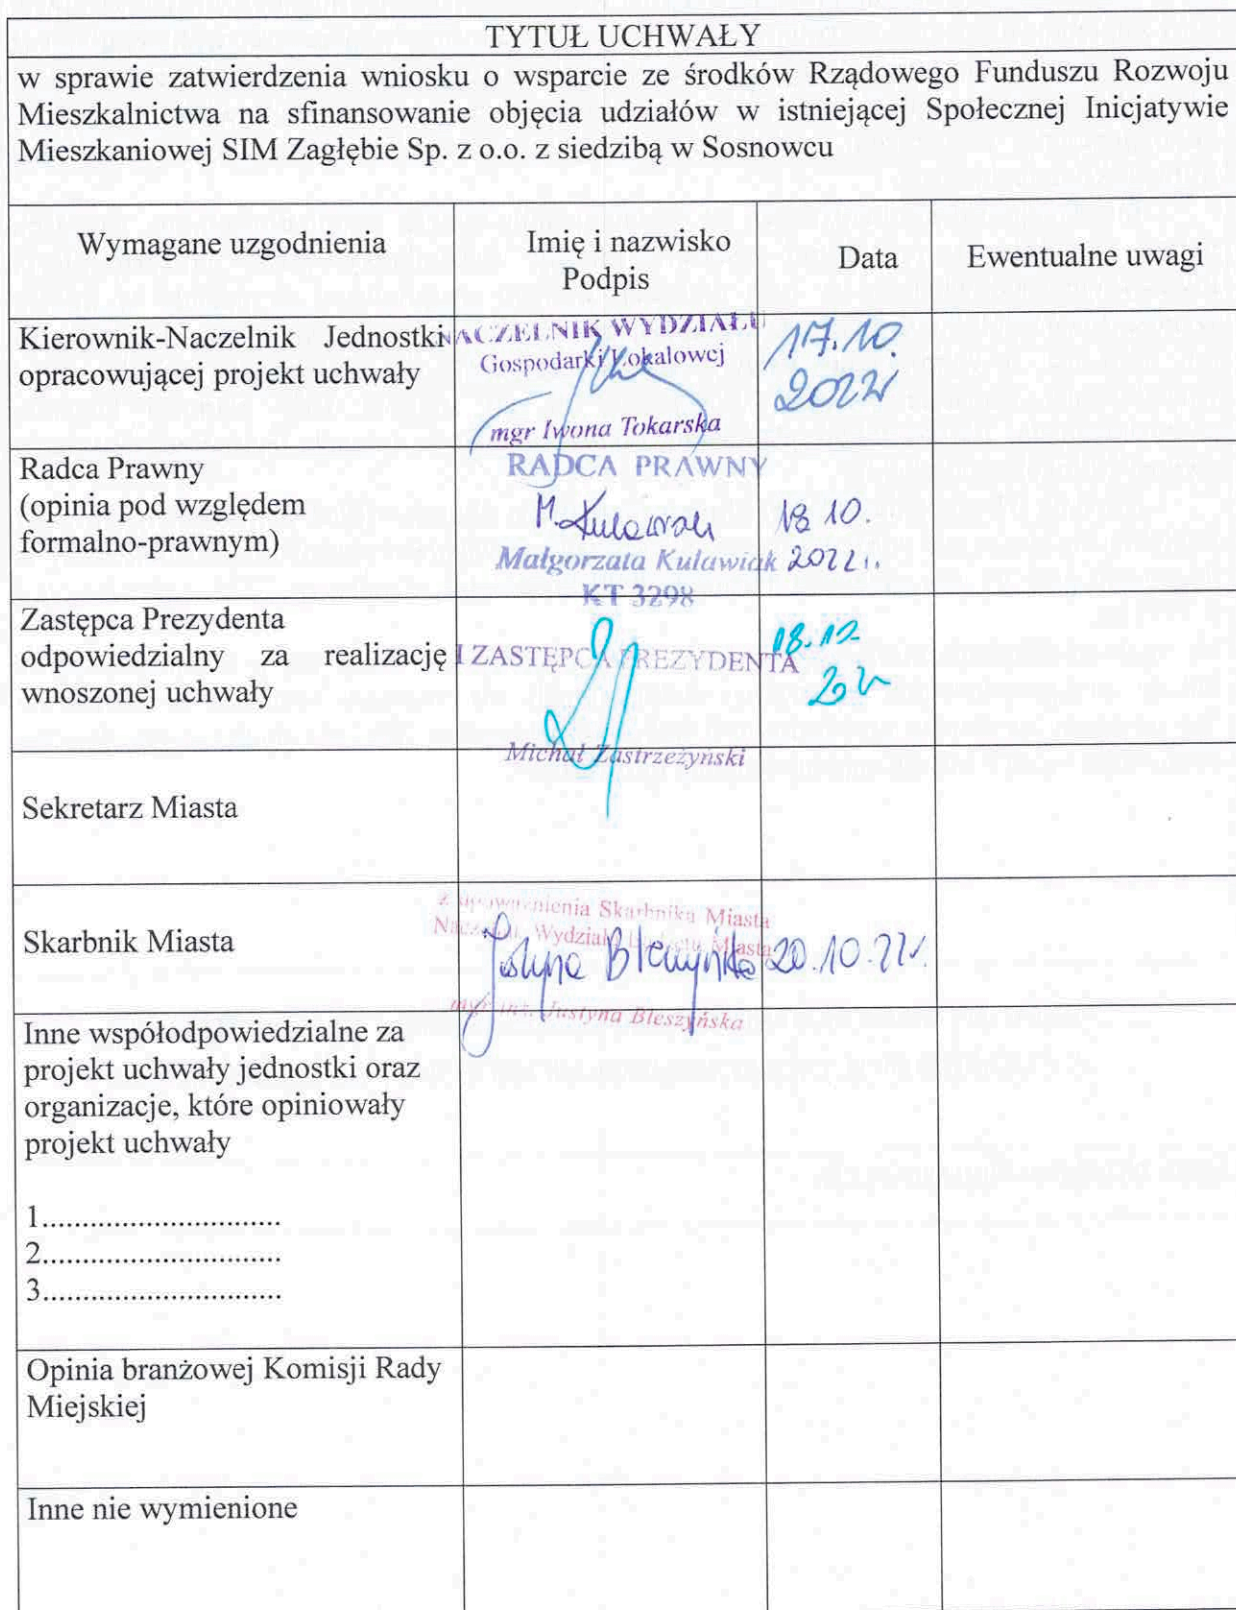 TYTUŁ UCHWAŁY
w sprawie zatwierdzenia wniosku o wsparcie ze środków Rządowego Funduszu Rozwoju
Mieszkalnictwa na sfinansowanie objęcia udziałów w istniejącej Społecznej Inicjatywie
Mieszkaniowej SIM Zagłębie Sp. z o.o. z siedzibą w Sosnowcu
Wymagane uzgodnienia
Imię i nazwisko
Podpis
Data
Ewentualne uwagi
Kierownik-Naczelnik Jednostki
opracowującej projekt uchwały
NACZELNIK WYDZIAŁU
Gospodarki Lokalowej
mgr Iwona Tokarska
17.10.
2022r
Radca Prawny
(opinia pod względem
formalno-prawnym)
RADCA PRAWNY
M. Kulawiak
Małgorzata Kulawiak
KT 3298
18 10.
2022 r.
Zastępca Prezydenta
odpowiedzialny za realizację
wnoszonej uchwały
I ZASTĘPCA PREZYDENTA
Michał Zastrzeżyński
18.12
Sekretarz Miasta
Skarbnik Miasta
z upoważnienia Skarbnika Miasta
Naczelnik Wydziału Budżetu Miasta
Justyna Bleszyńska
mgr inż. Justyna Bleszyńska
20.10.22r.
Inne współodpowiedzialne za
projekt uchwały jednostki oraz
organizacje, które opiniowały
projekt uchwały
1.............................
2.............................
3.............................
Opinia branżowej Komisji Rady
Miejskiej
Inne nie wymienione